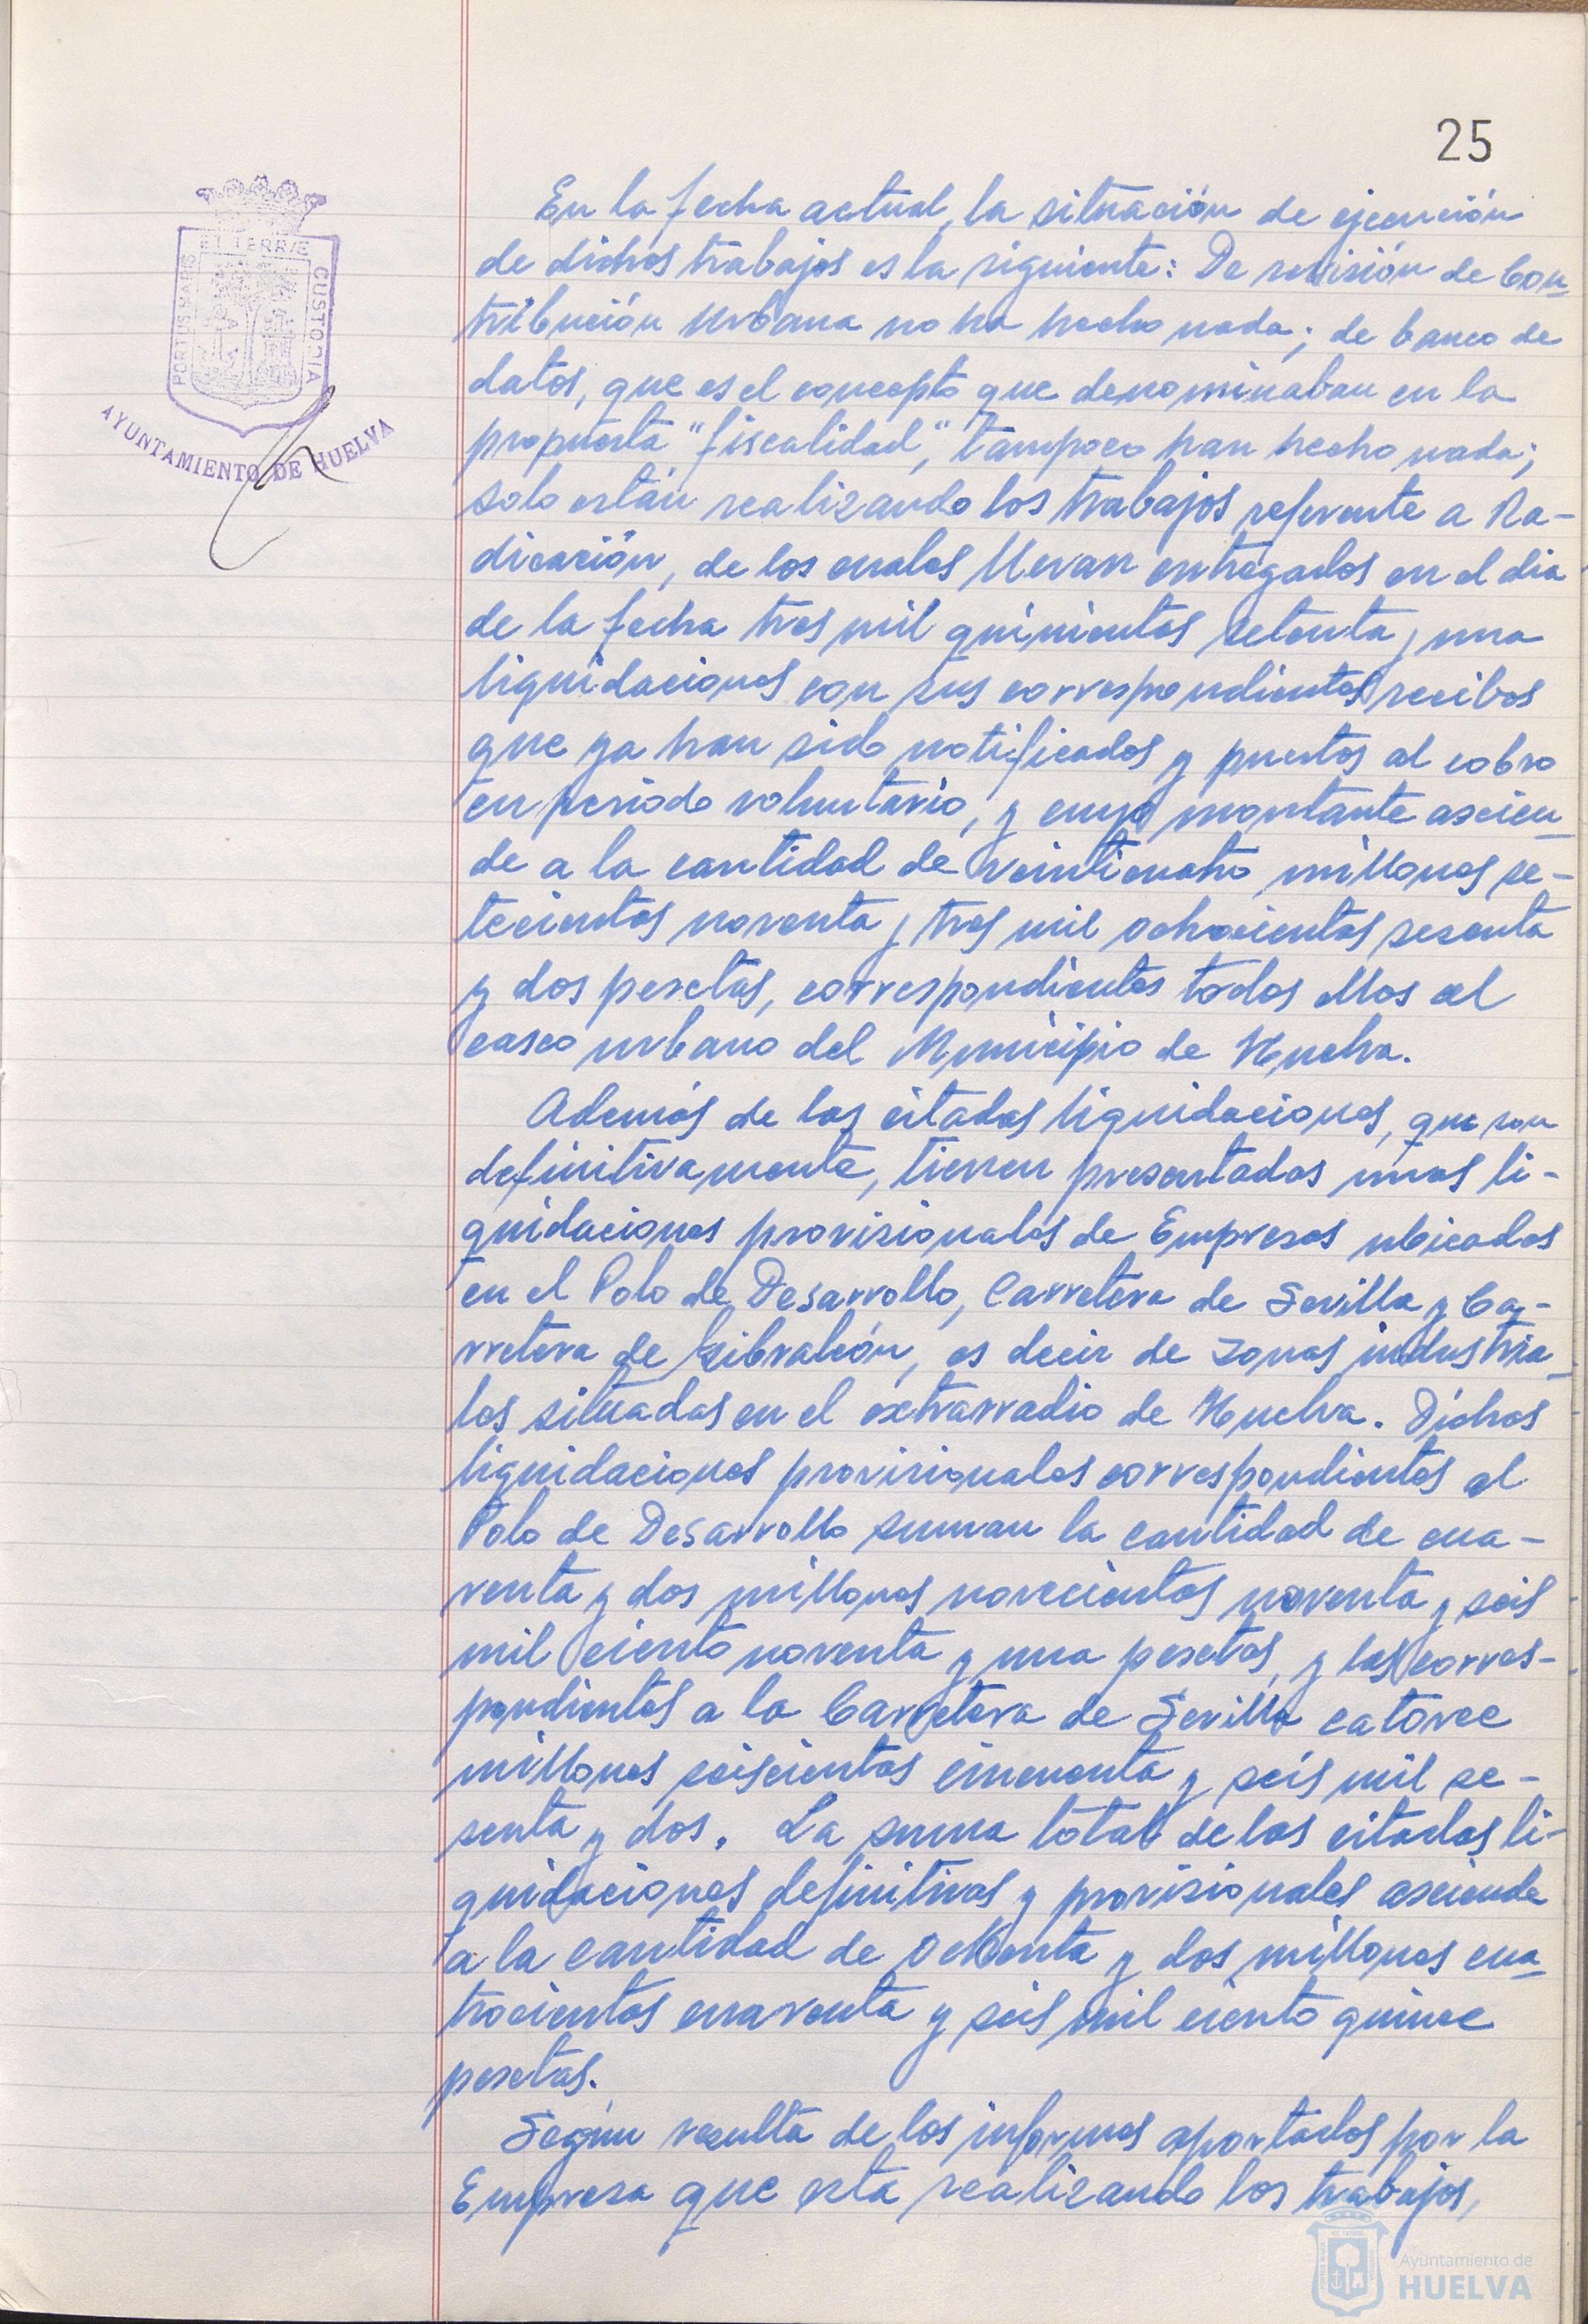 25
PORTUS MARIS ET TERRÆ CUSTODIA
AYUNTAMIENTO DE HUELVA
En la fecha actual, la situación de ejecución
de dichos trabajos es la siguiente: De revisión de Con-
tribución Urbana no ha hecho nada; de banco de
datos, que es el concepto que denominaban en la
propuesta "fiscalidad", tampoco han hecho nada;
solo están realizando los trabajos referente a Ra-
dicación, de los cuales llevan entregados en el dia
de la fecha tres mil quinientas setenta y una
liquidaciones con sus correspondientes recibos
que ya han sido notificados y puestos al cobro
en periodo voluntario, y cuyo montante ascien-
de a la cantidad de veinticuatro millones se-
tecientas noventa y tres mil ochocientas sesenta
y dos pesetas, correspondientes todos ellos al
casco urbano del Municipio de Huelva.
Además de las citadas liquidaciones, que son
definitivamente, tienen presentadas unas li-
quidaciones provisionales de Empresas ubicadas
en el Polo de Desarrollo, Carretera de Sevilla y Ca-
rretera de Gibraleón, es decir de zonas industria-
les situadas en el extrarradio de Huelva. Dichas
liquidaciones provisionales correspondientes al
Polo de Desarrollo suman la cantidad de cua-
renta y dos millones novecientas noventa y seis
mil ciento noventa y una pesetas, y las corres-
pondientes a la Carretera de Sevilla catorce
millones seiscientas cincuenta y seis mil se-
senta y dos. La suma total de las citadas li-
quidaciones definitivas y provisionales asciende
a la cantidad de ochenta y dos millones cua-
trocientas cuarenta y seis mil ciento quince
pesetas.
Según resulta de los informes aportados por la
Empresa que esta realizando los trabajos,
Ayuntamiento de
HUELVA